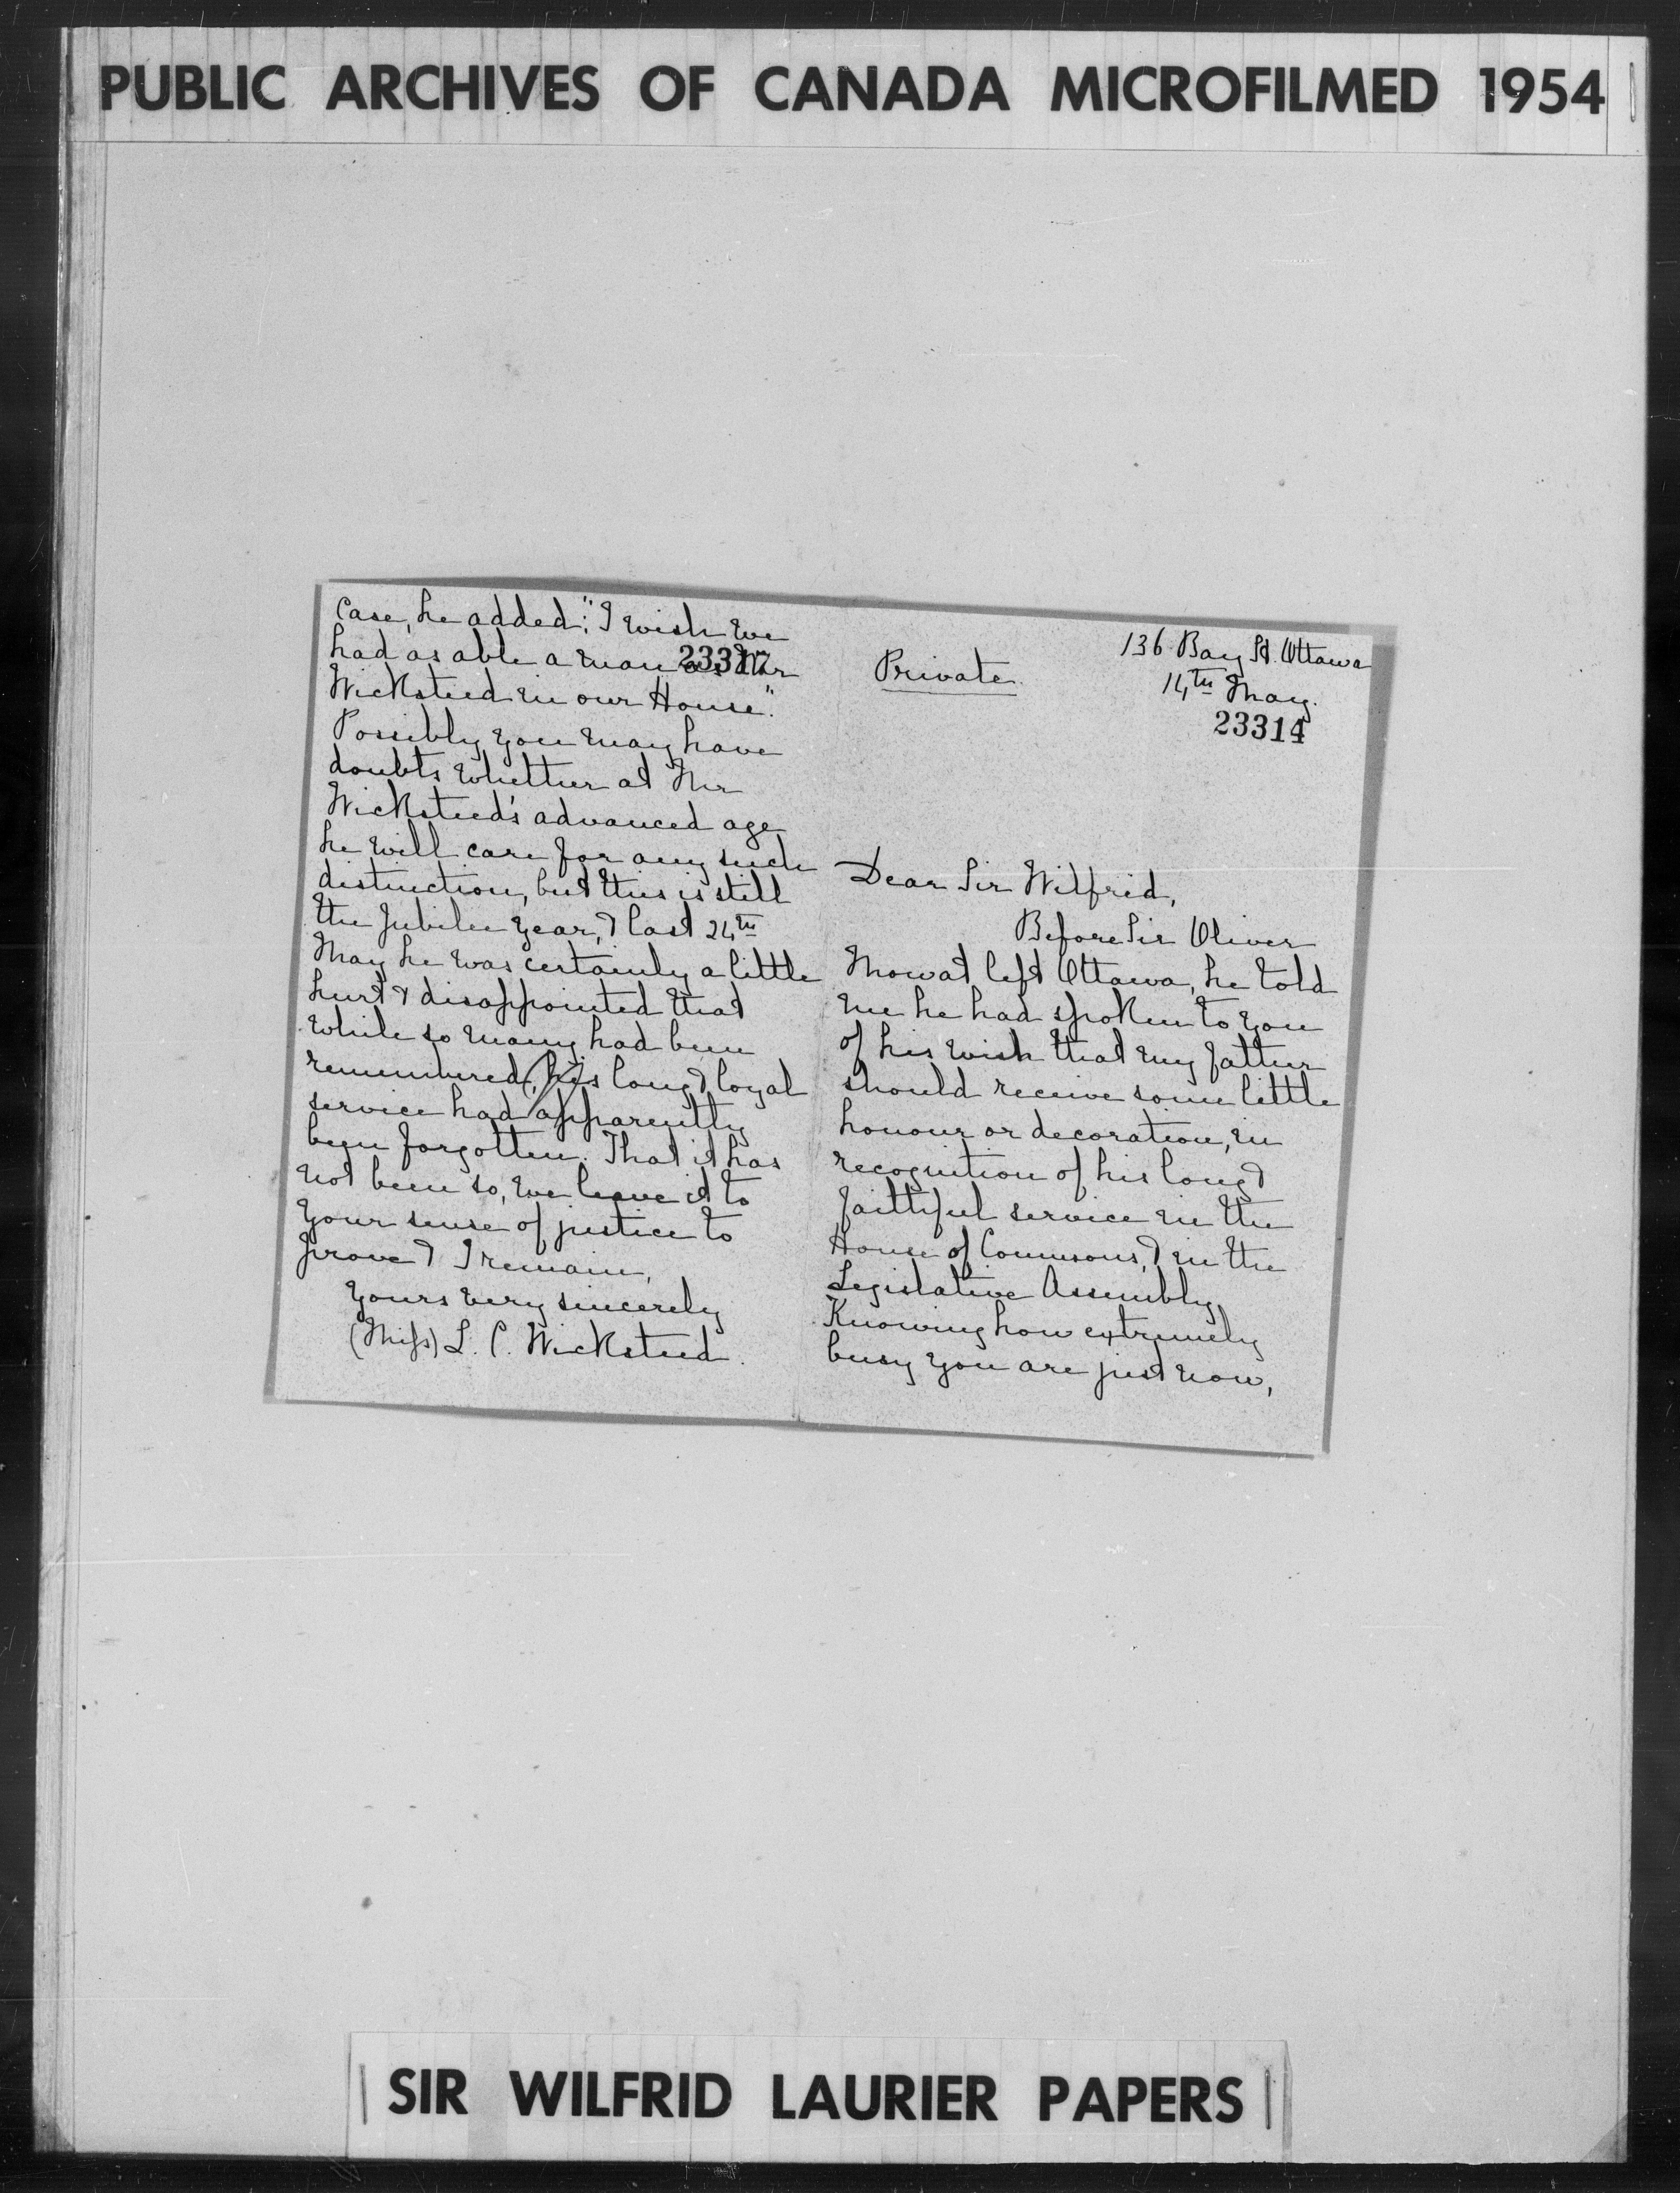 PUBLIC ARCHIVES OF CANADA MICROFILMED 1954
Case, he added: "I wish we
had as able a man as Mr
23317
Wicksteed in our House."
Possibly you may have
doubts whether at Mr
Wicksteed's advanced age
he will care for any such
distinction, but this is still
the Jubilee Year, & last 24th
May he was certainly a little
hurt & disappointed that
while so many had been
remembered, his long & loyal
service had apparently
been forgotten. That it has
not been so, we leave it to
your sense of justice to
prove & I remain,
Yours very sincerely
(Miss) L. C. Wicksteed.
136 Bay St. Ottawa
Private
14th May.
23314
Dear Sir Wilfrid,
Before Sir Oliver
Mowat left Ottawa, he told
me he had spoken to you
of his wish that my father
should receive some little
honour or decoration, in
recognition of his long &
faithful service in the
House of Commons, & in the
Legislative Assembly.
Knowing how extremely
busy you are just now,
SIR WILFRID LAURIER PAPERS